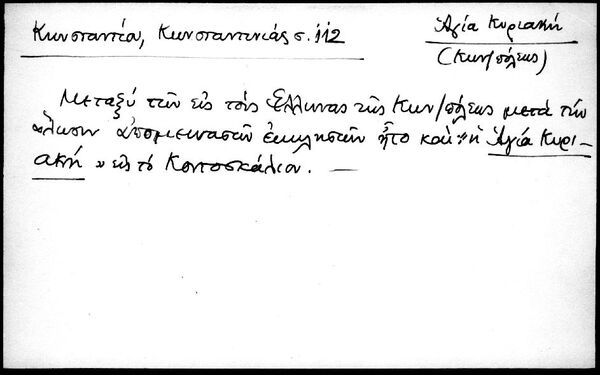 Κωνσταντίου, Κωνσταντινιάς σ. 112
Ἁγία Κυριακή
(Κων/πόλεως)
Μεταξύ τῶν εἰς τούς Ἕλληνας τῆς Κων/πόλεως μετά τήν
ἅλωσιν ἀπομεινασῶν ἐκκλησιῶν ἦτο καί "ἡ Ἁγία Κυρι-
ακή" εἰς τό Κοντοσκάλιον. —